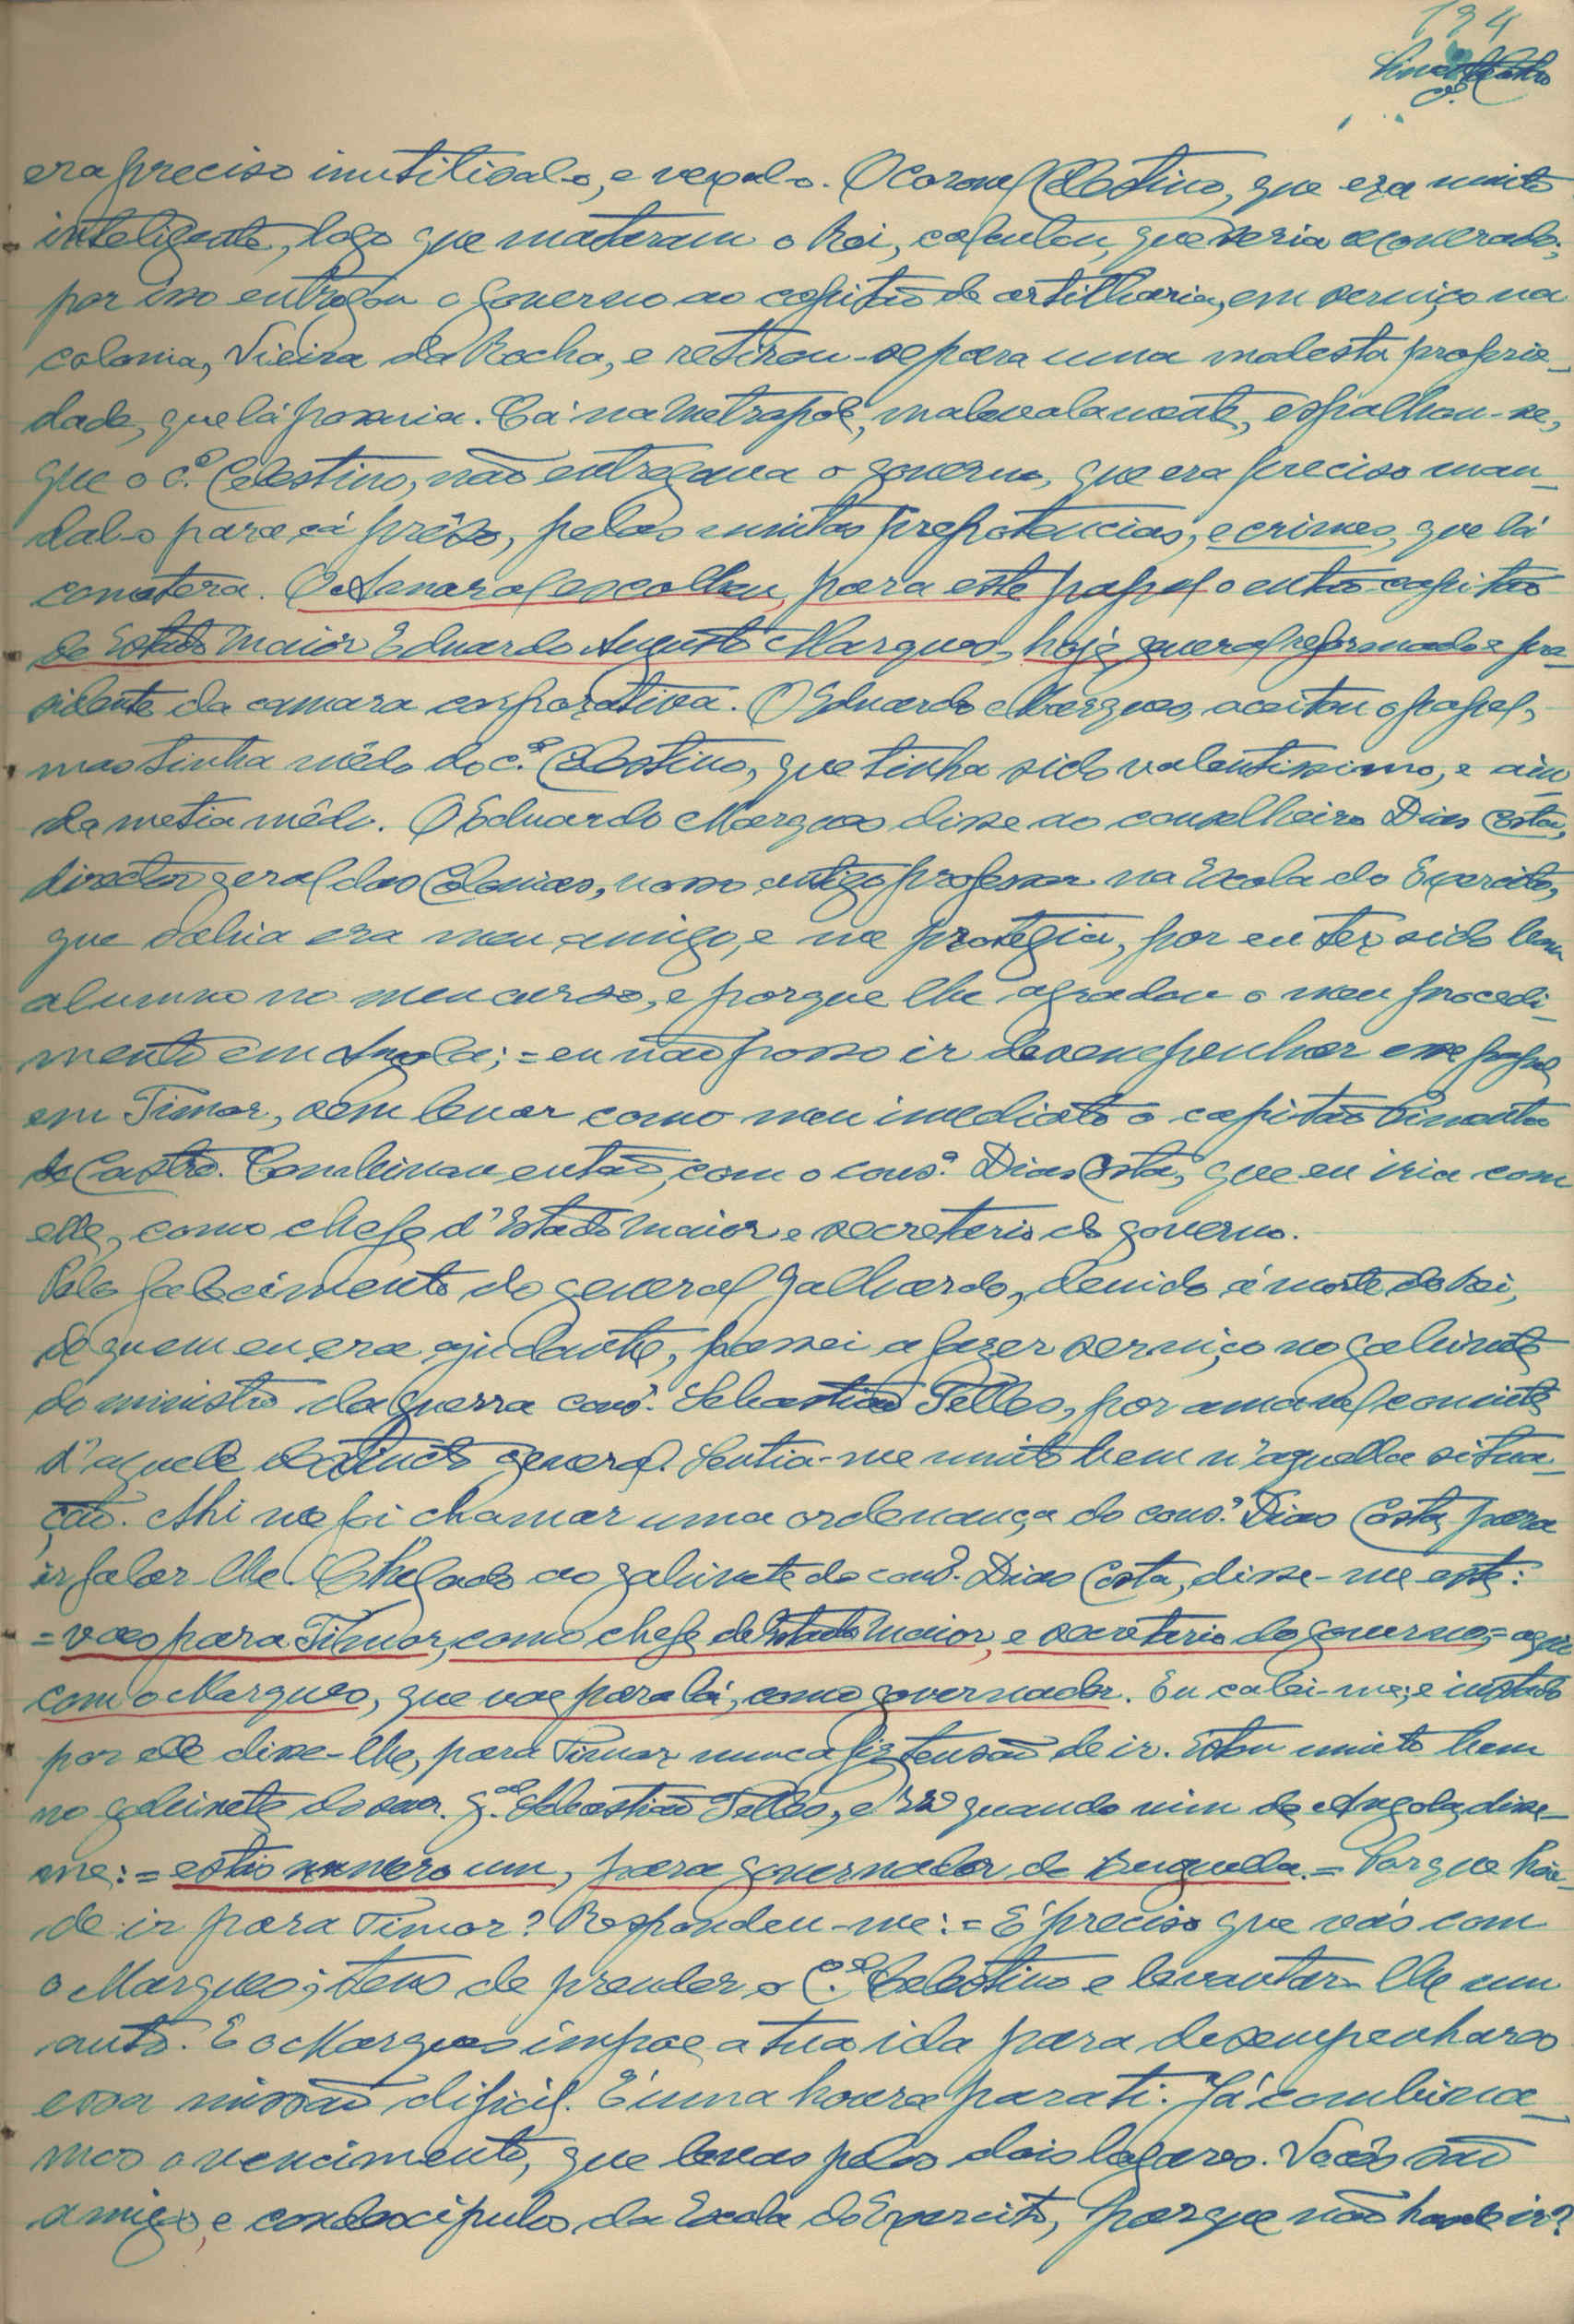 194
era preciso inutilisal-o, e vexal-o. O Coronel Celestino, que era muito
inteligente, logo que mataram o Rei, calculou, que seria exonerado;
por isso entregou o governo ao capitão de artilharia, em serviço na
colonia, Vieira da Rocha, e retirou-se para uma modesta proprie-
dade, que lá possuia. Cá na Metropole, malevolamente, espalhou-se,
que o c.el Celestino, não entregava o governo, que era preciso man-
dal-o para cá prêso, pelas muitas prepotencias, e crimes, que lá
cometera. O Amaral escolheu, para este papel o então capitão
de Estado Maior Eduardo Augusto Marques, hoje general reformado e pre-
sidente da camara corporativa. O Eduardo Marques, aceitou o papel,
mas tinha mêdo do c.el Celestino, que tinha sido valentissimo, e ain-
da metia mêdo. O Eduardo Marques disse ao conselheiro Dias Costa,
director geral das Colonias, nosso antigo professor na Escola do Exercito,
que sabia era meu amigo, e me protegia, por eu ter sido bom
alumno no meu curso, e porque lhe agradou o meu procedi-
mento em Angola; = eu não posso ir desempenhar esse papel
em Timor, sem levar como meu imediato o capitão Pimenta
de Castro. Combinou então, com o cons.º Dias Costa, que eu iria com
elle, como chefe d'Estado Maior e secretario do governo.
Pelo falecimento do general Galhardo, devido á morte do Rei,
de quem eu era ajudante, passei a fazer serviço no gabinete
do ministro da guerra cons.º Sebastião Telles, por amavel convite
d'aquele distincto general. Sentia-me muito bem n'aquella situa-
ção. Ahi me foi chamar uma ordenança do cons.º Dias Costa, para
ir falar-lhe. Chegado ao gabinete do cons.º Dias Costa, disse-me este:
= vaes para Timor, como chefe de Estado Maior, e secretario do governo, =
com o Marques, que vae para lá, como governador. Eu calei-me; e instado
por elle disse-lhe, para Timor nunca fiz tensão de ir. Estou muito bem
no gabinete do snr. g.al Sebastião Telles, e quando vim de Angola, disse-
me: = estás numero um, para governador de Benguella. = Porque hei-
de ir para Timor? Respondeu-me: = É preciso que vás com
o Marques; tens de prender o C.el Celestino e levantar-lhe um
auto. E o Marques impoe a tua ida para desempenhares
essa missão dificil. É uma honra para ti. Já combina-
mos o vencimento, que levas pelos dois logares. Vocês são
amigos, e condiscipulos da Escola do Exercito, porque não has de ir?